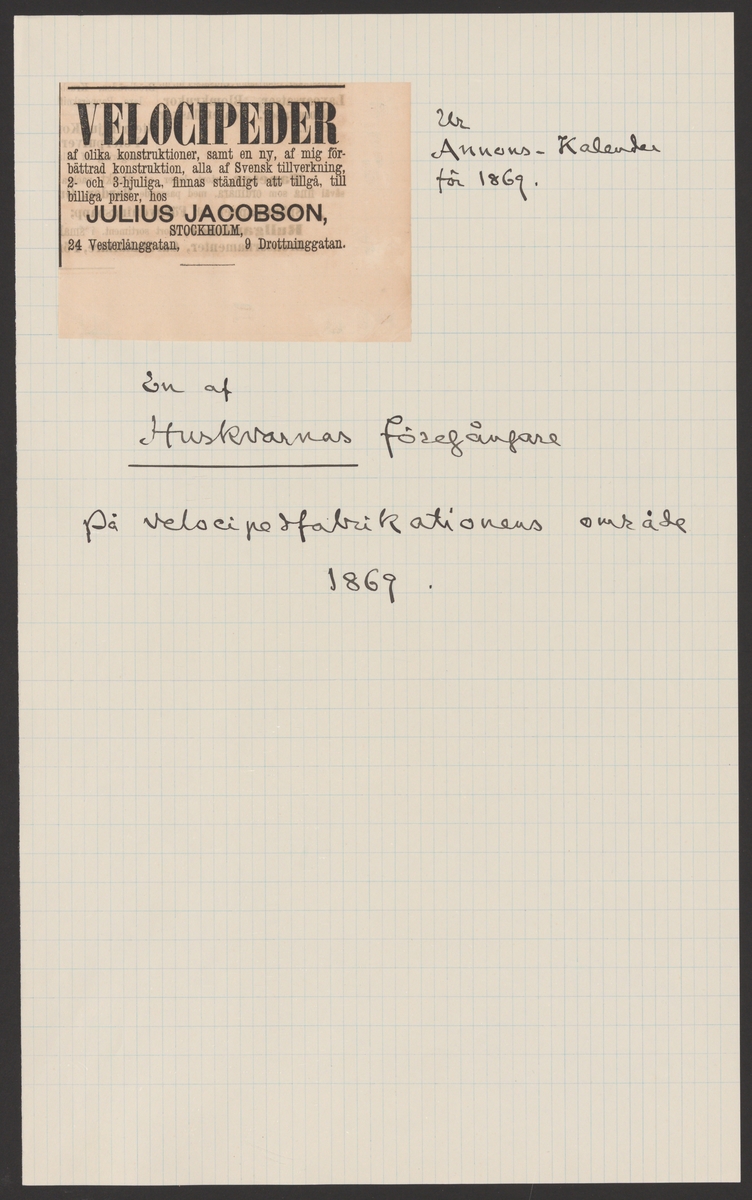 VELOCIPEDER
af olika konstruktioner, samt en ny, af mig för-
bättrad konstruktion, alla af Svensk tillverkning,
2- och 3-hjuliga, finnas ständigt att tillgå, till
billiga priser, hos
JULIUS JACOBSON,
STOCKHOLM,
24 Vesterlånggatan, 9 Drottninggatan.
Ur
Annons-Kalender
för 1869.
En af
Huskvarnas föregångare
på velocipedfabrikationens område
1869.